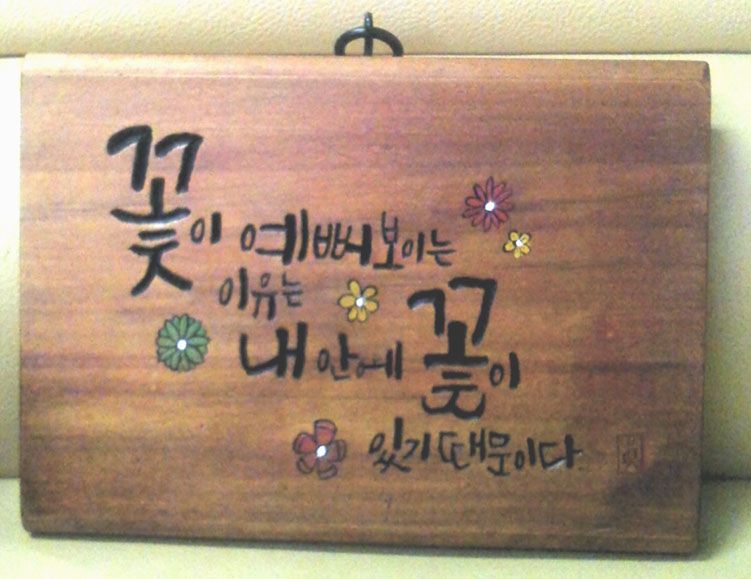 꽃이 예뻐보이는
이유는
내 안에 꽃이
있기 때문이다